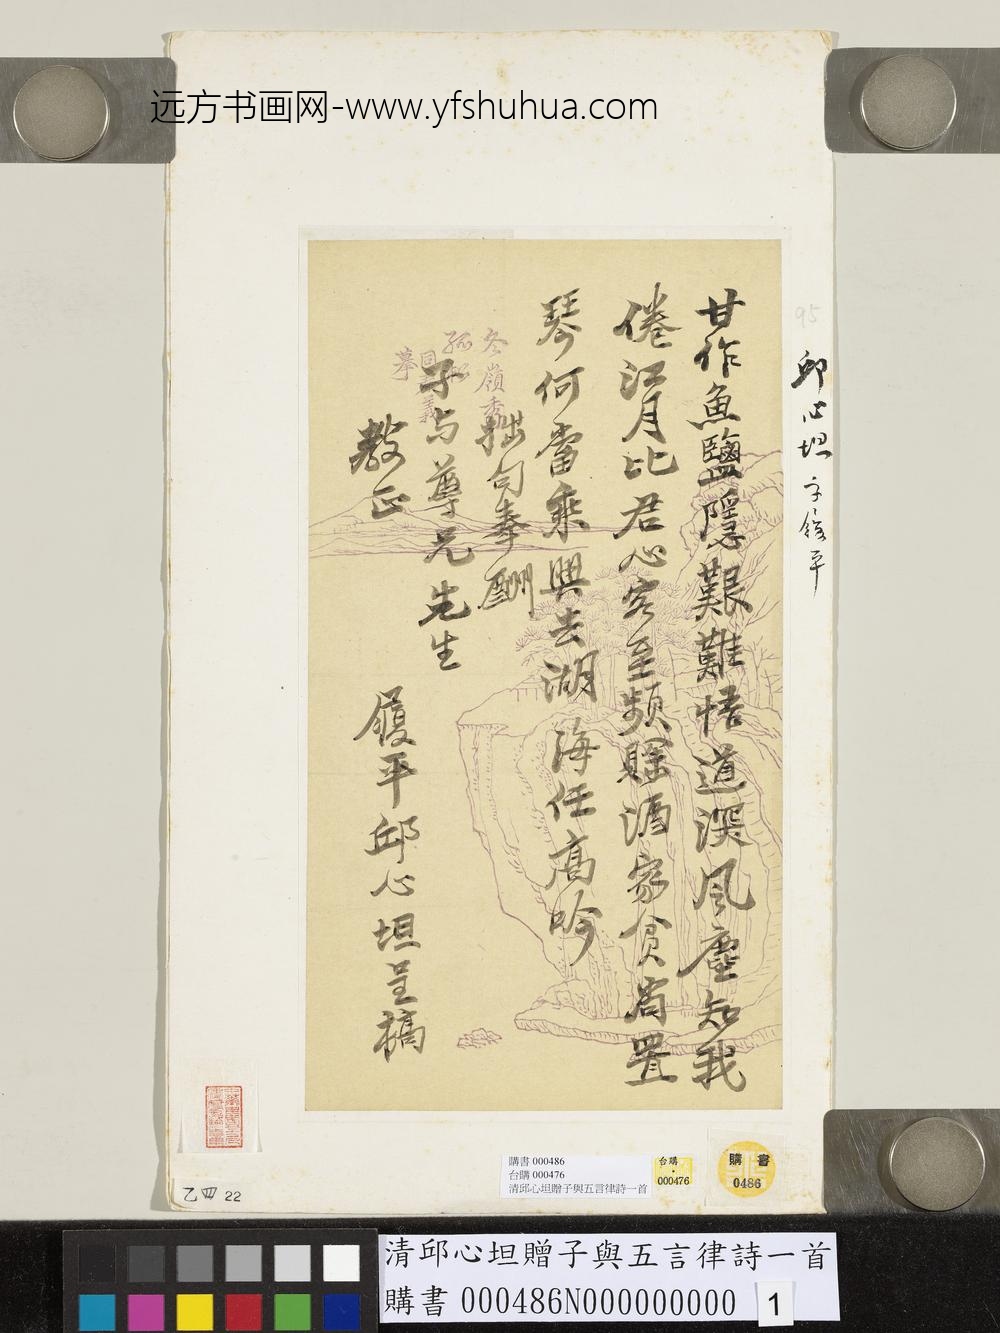 远方书画网-www.yfshuhua.com
95
邱心坦 字履平
甘作魚鹽隱艱難悟道深風塵知我
倦江月比君心客至頻賒酒家貧尚置
琴何當乘興去湖海任高吟
拙句奉酬
子与尊兄先生
教正
履平邱心坦呈稿
冬嶺秀
孤松
摹
乙四 22
購書 000486
台購 000476
清邱心坦贈子與五言律詩一首
台購
000476
購書
0486
清邱心坦贈子與五言律詩一首
購書 000486N000000000
1